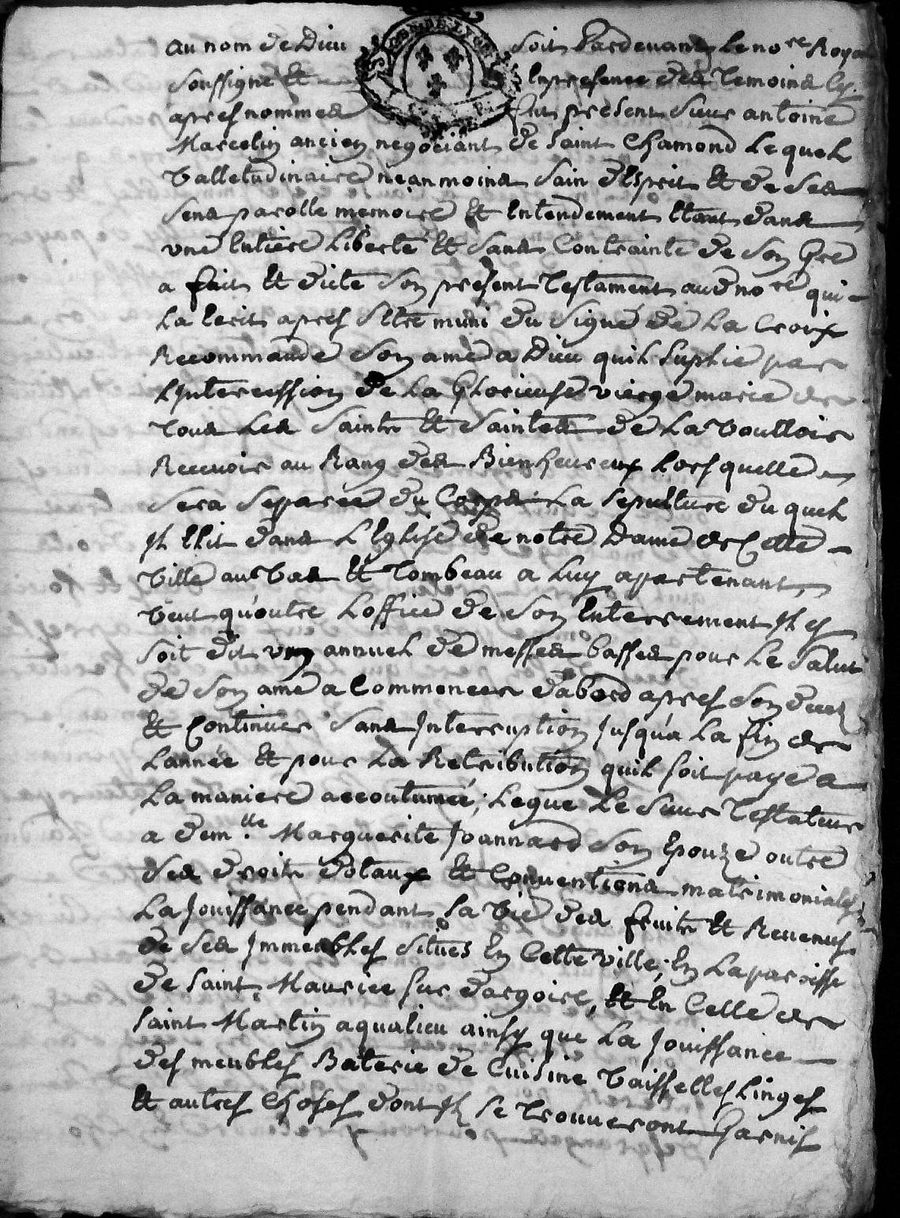 au nom de Dieu soit Pardevant Le no.re Royal
soussigné et En presence des temoins cy
apres nommes fut present sieur antoine
Marcelin ancien negociant de saint Chamond Lequel
valletudinaire neanmoins sain d'Esprit et de ses
sens parolle memoire et Entendement Etant dans
une Entiere Liberté et sans Contrainte de son Gré
a fait et dicté son present testament audno.re qui
La Ecrit apres s'Etre muni du signe de La Croix
Recommande son ame a Dieu quil suplie par
L'intercession de La Glorieuse vierge marie de
tous Les saints et saintes de La voulloir
Recevoir au Rang des Bienheureux Lorsquelle
sera separée du Corps La sepulture du quel
Il Elit dans L'Eglise de notre Dame de Cette
ville au vas et tombeau a Luy apartenant
veut qu'outre L'office de son Enterrement Il y
soit dit un annuel de messes basses pour Le salut
de son ame a Commencer d'abord apres son deces
et Continuer sans Interruption Jusqu'a La fin de
L'année et pour La Retribution quil soit payé a
La maniere accoutumée; Legue Le sieur testateur
a dem.lle Marguerite Joannard son Epouze outre
ses droits dotaux et Conventions matrimoniales
La Jouissance pendant sa vie des fruits et Revenus
de ses Immeubles situés En Cette ville, En La paroisse
de saint Maurice sur dargoire, et En Celle de
saint Martin aqualieu ainsy que La Jouissance
des meubles Baterie de Cuisine vaisselles Linges
et autres Choses dont Il se trouveront Garnis